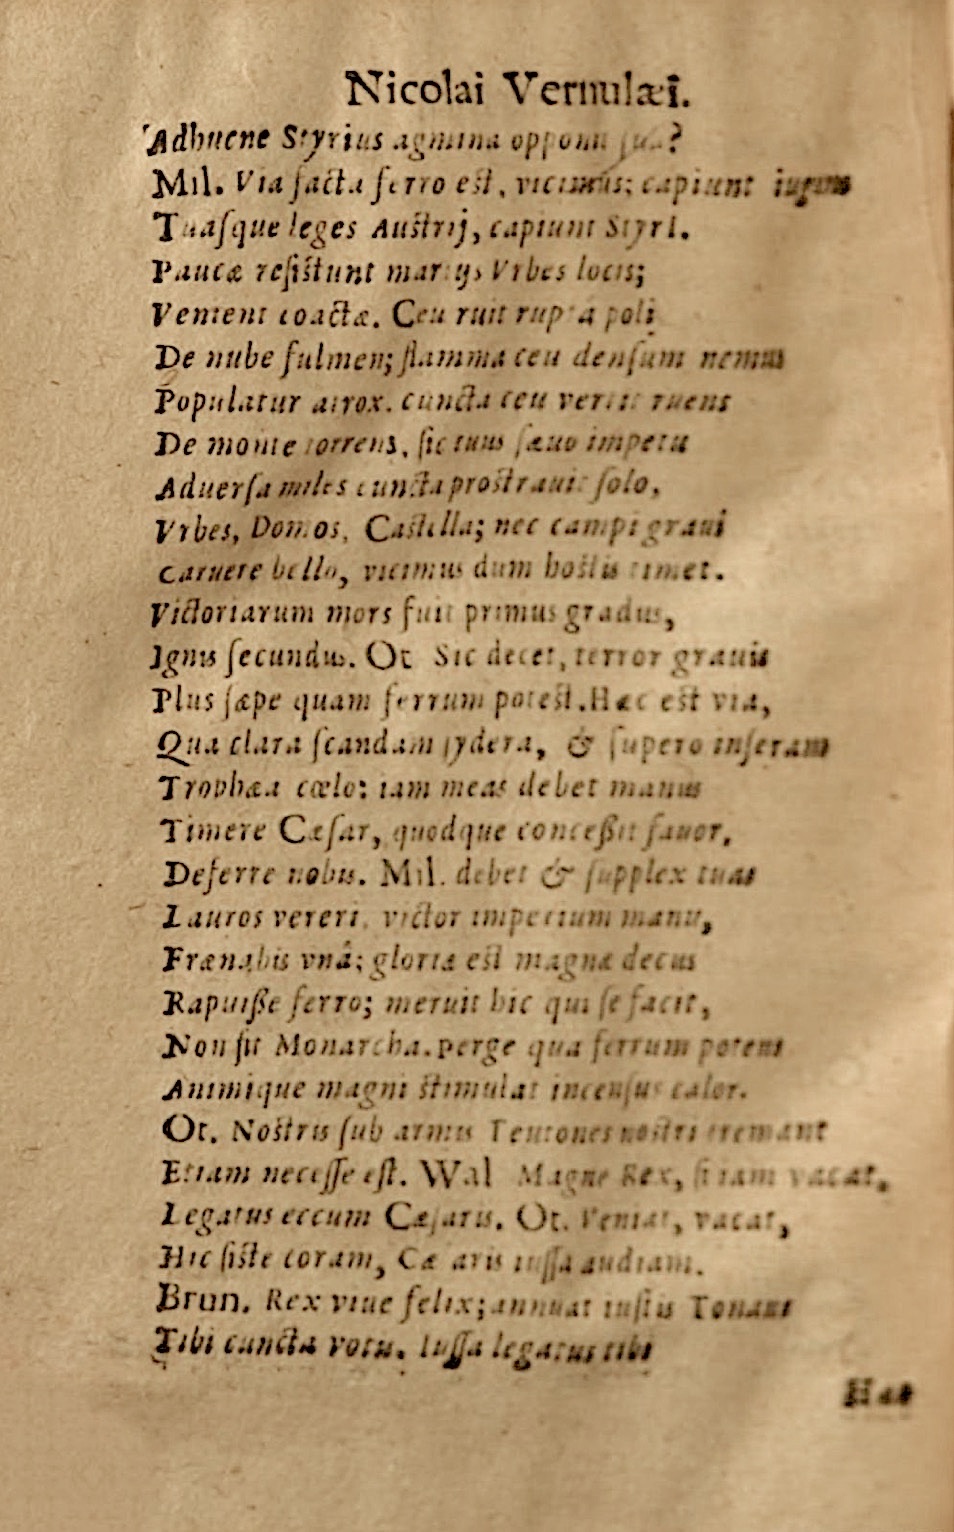 Nicolai Vernulæi.
Adhucne Styrius agmina opponit sua?
Mil. Via facta ferro est, vicimus; capiunt iugum
Tuasque leges Austrij, capiunt Styri.
Paucæ resistunt martijs Vrbes locis;
Venient coactæ. Ceu ruit rupta poli
De nube fulmen; flamma ceu densum nemus
Populatur atrox. cuncta ceu verrit ruens
De monte torrens, sic tuus sæuo impetu
Aduersa miles cuncta prostrauit solo.
Vrbes, Domos, Castella; nec campi graui
Caruere bello, vicimus dum hostis timet.
Victoriarum mors fuit primus gradus,
Ignis secundus. Ot Sic decet, terror grauis
Plus sæpe quam ferrum potest. Hæc est via,
Qua clara scandam sydera, & supero inseram
Trophæa cœlo: iam meas debet manus
Timere Cæsar, quodque concessit fauor,
Deferre nobis. Mil. debet & supplex tuas
Lauros vereri, victor imperium manu,
Frænabis vnâ; gloria est magnæ decus
Rapuisse ferro; meruit hic qui se facit,
Non fit Monarcha. perge qua ferrum potens
Animique magni stimulat incensus calor.
Ot. Nostris sub armis Teutones nostri tremant
Etiam necesse est. Wal Magne Rex, si iam vacat,
Legatus eccum Cæsaris. Ot. Veniat, vacat,
Hic siste coram, Cæsaris iussa audiam.
Brun. Rex viue felix; annuat iustis Tonans
Tibi cuncta votis. Iussa legatus tibi
Hæc